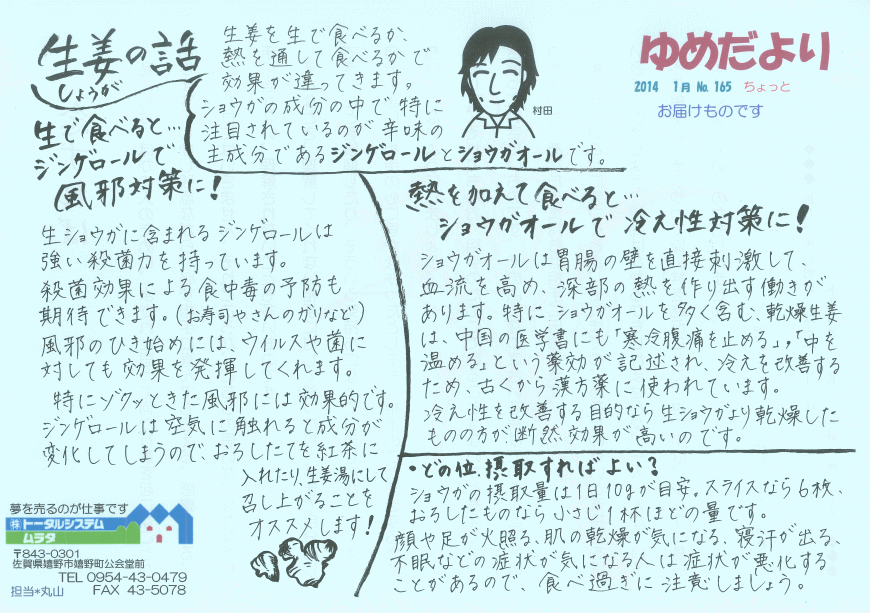 生姜の話
しょうが
生姜を生で食べるか、
熱を通して食べるかで
効果が違ってきます。
ショウガの成分の中で特に
注目されているのが辛味の
主成分であるジンゲロールとショウガオールです。
村田
ゆめだより
2014 1月 No. 165 ちょっと
お届けものです
生で食べると…
ジンゲロールで
風邪対策に!
生ショウガに含まれるジンゲロールは
強い殺菌力を持っています。
殺菌効果による食中毒の予防も
期待できます。(お寿司やさんのガリなど)
風邪のひき始めには、ウイルスや菌に
対しても効果を発揮してくれます。
特にゾクッときた風邪には効果的です。
ジンゲロールは空気に触れると成分が
変化してしまうので、おろしたてを紅茶に
入れたり、生姜湯にして
召し上がることを
オススメします!
熱を加えて食べると…
ショウガオールで冷え性対策に!
ショウガオールは胃腸の壁を直接刺激して、
血流を高め、深部の熱を作り出す働きが
あります。特に、ショウガオールを多く含む、乾燥生姜
は、中国の医学書にも「寒冷腹痛を止める」,「中を
温める」という薬効が記述され、冷えを改善する
ため、古くから漢方薬に使われています。
冷え性を改善する目的なら生ショウガより乾燥した
ものの方が断然効果が高いのです。
・どの位、摂取すればよい?
ショウガの摂取量は1日10gが目安。スライスなら6枚、
おろしたものなら小さじ1杯ほどの量です。
顔や足が火照る、肌の乾燥が気になる、寝汗が出る、
不眠などの症状が気になる人は症状が悪化する
ことがあるので、食べ過ぎに注意しましょう。
夢を売るのが仕事です
㈱トータルシステム
ムラタ
〒843-0301
佐賀県嬉野市嬉野町公会堂前
TEL 0954-43-0479
担当*丸山 FAX 43-5078